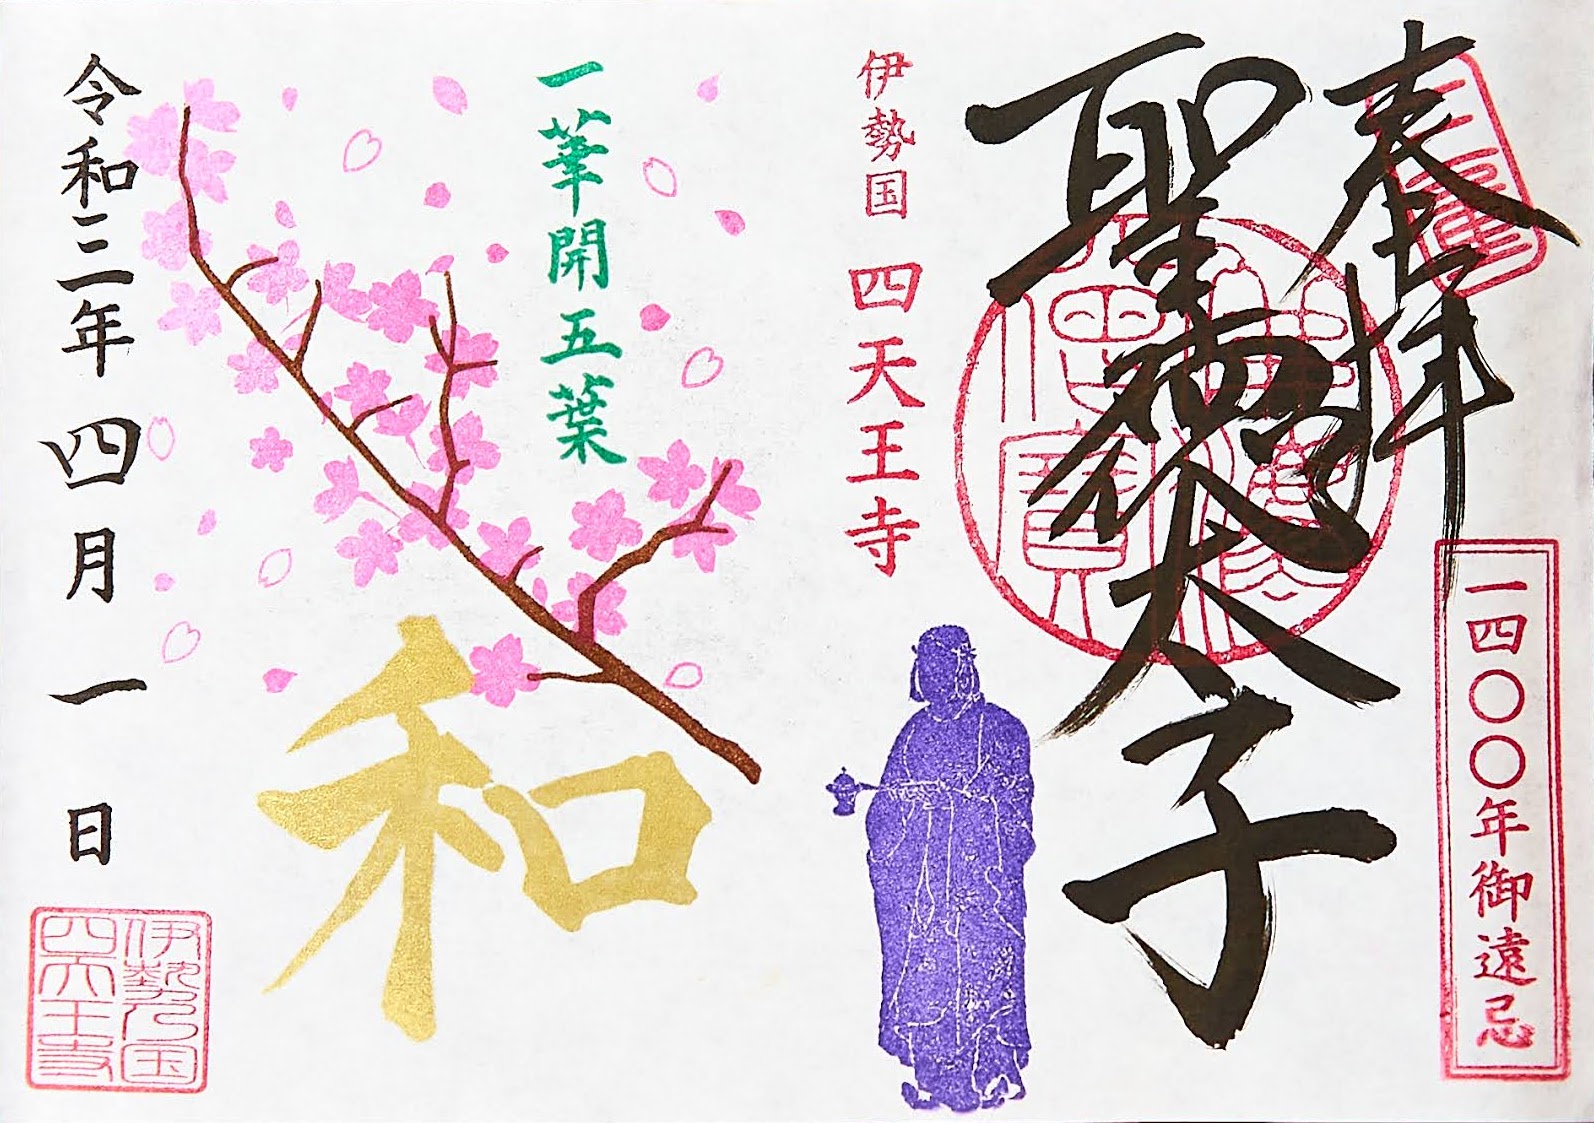 奉拝
一四〇〇年御遠忌
聖徳太子
仏法僧寳
伊勢国 四天王寺
一華開五葉
和
令和三年 四月一日
伊勢乃国
四天王寺